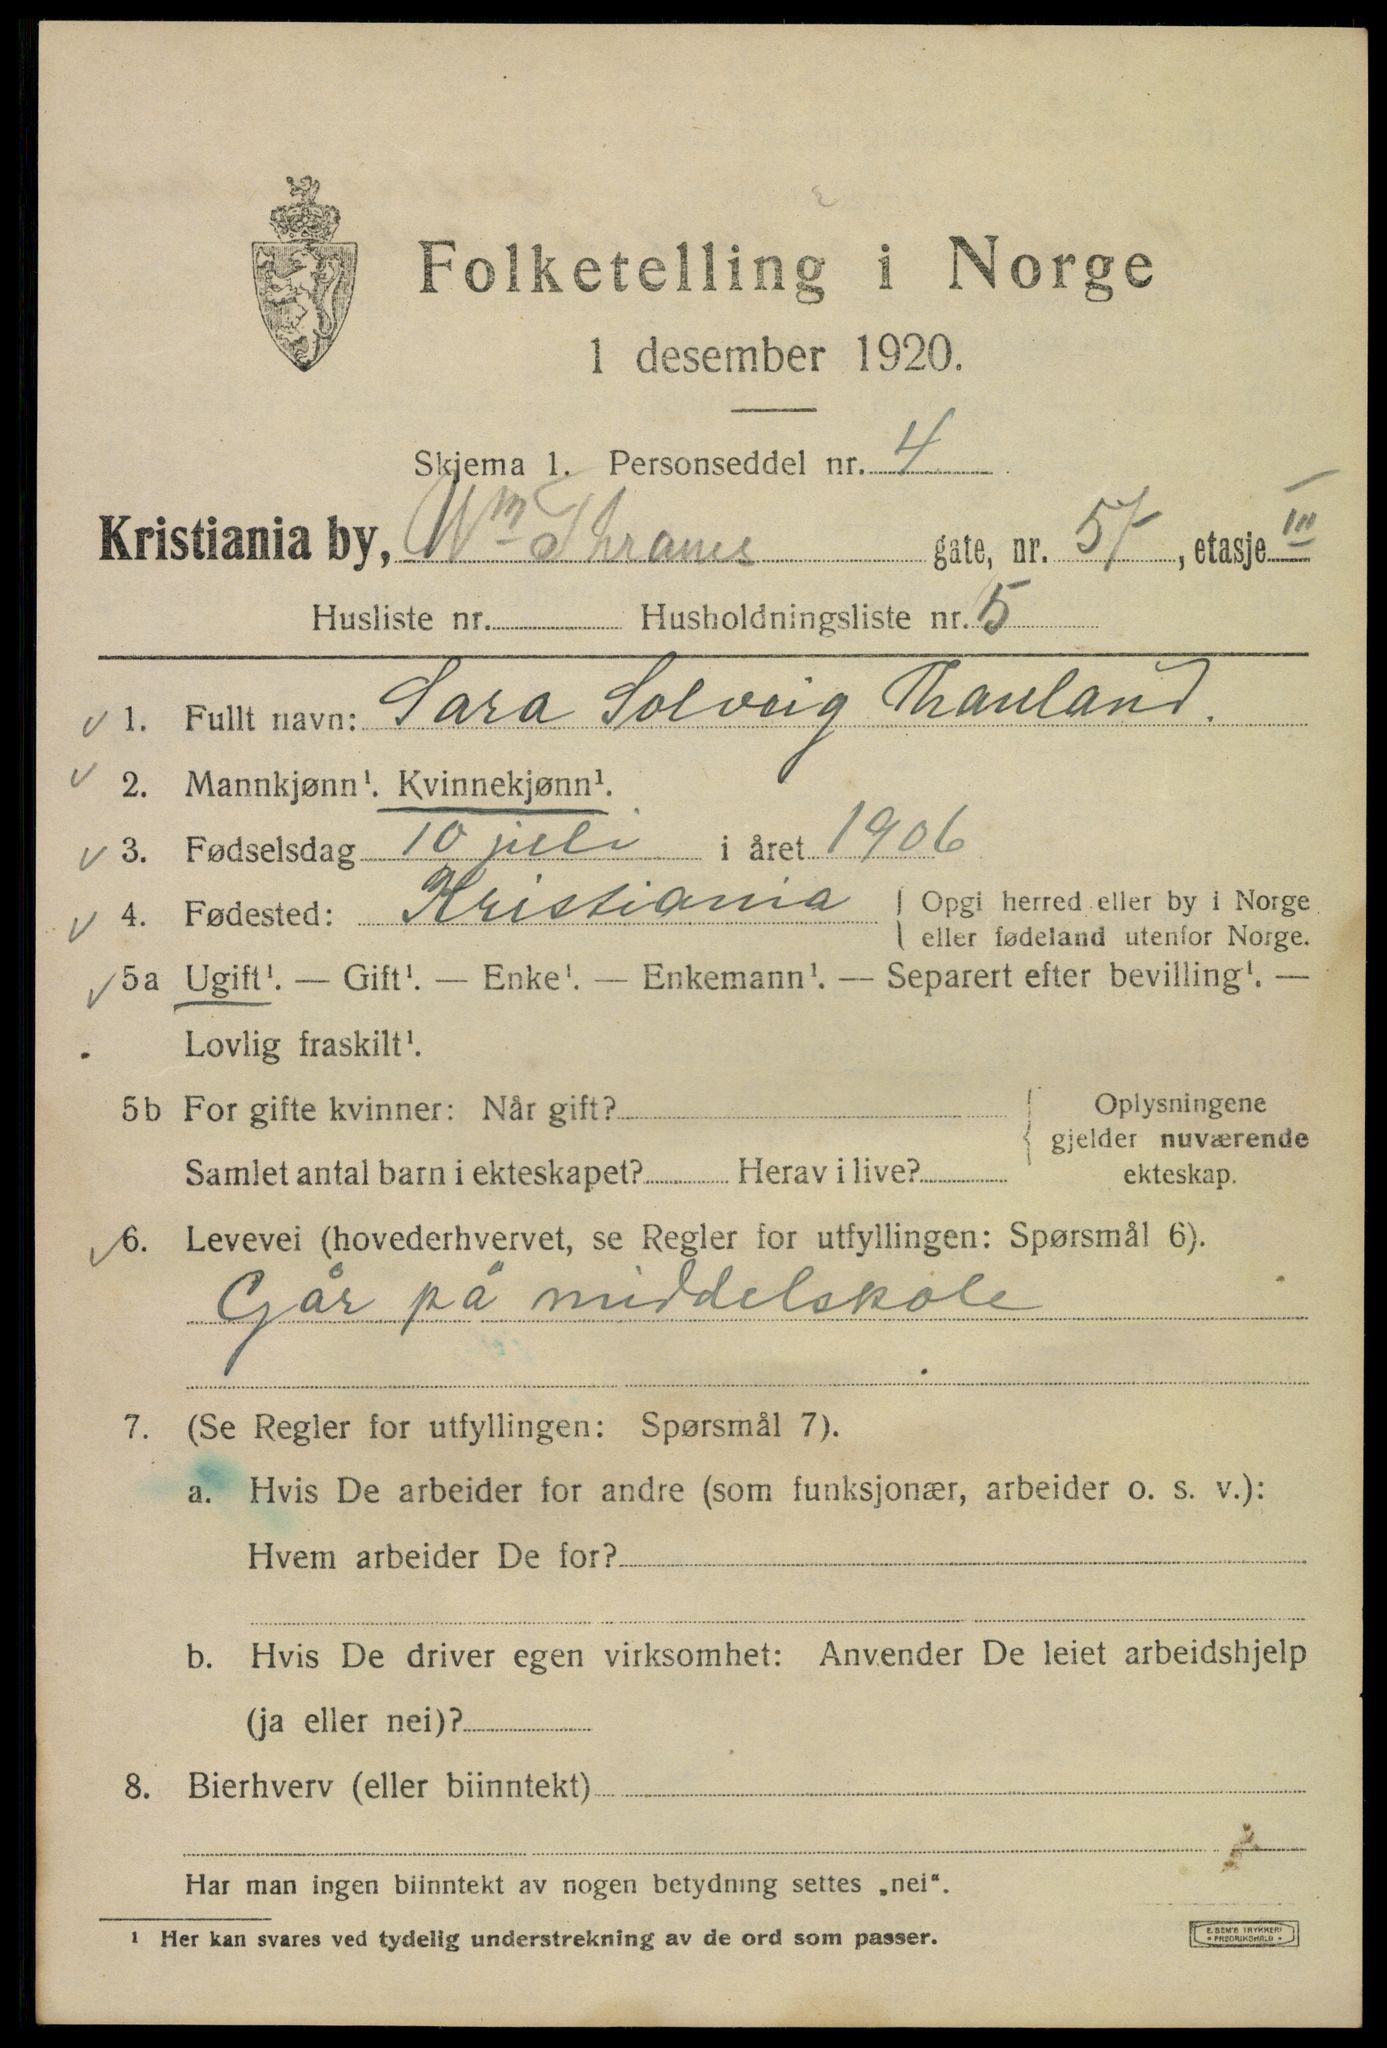 Folketelling i Norge
1 desember 1920.
Skjema 1. Personseddel nr. 4
Kristiania by, Wm Thranes gate, nr. 57, etasje III
Husliste nr. Husholdningsliste nr. 5
1. Fullt navn: Sara Solveig Thauland.
2. Mannkjønn¹. Kvinnekjønn¹.
3. Fødselsdag 10 juli i året 1906
4. Fødested: Kristiania { Opgi herred eller by i Norge
eller fødeland utenfor Norge.
5a Ugift¹. — Gift¹. — Enke¹. — Enkemann¹. — Separert efter bevilling¹. —
Lovlig fraskilt¹.
5b For gifte kvinner: Når gift? { Oplysningene
gjelder nuværende
Samlet antal barn i ekteskapet? Herav i live? ekteskap.
6. Levevei (hovederhvervet, se Regler for utfyllingen: Spørsmål 6).
Går på middelskole
7. (Se Regler for utfyllingen: Spørsmål 7).
a. Hvis De arbeider for andre (som funksjonær, arbeider o. s. v.):
Hvem arbeider De for?
b. Hvis De driver egen virksomhet: Anvender De leiet arbeidshjelp
(ja eller nei)?
8. Bierhverv (eller biinntekt)
Har man ingen biinntekt av nogen betydning settes „nei“.
¹ Her kan svares ved tydelig understrekning av de ord som passer.
E. SEM'S TRYKKERI
• FREDRIKSHALD •